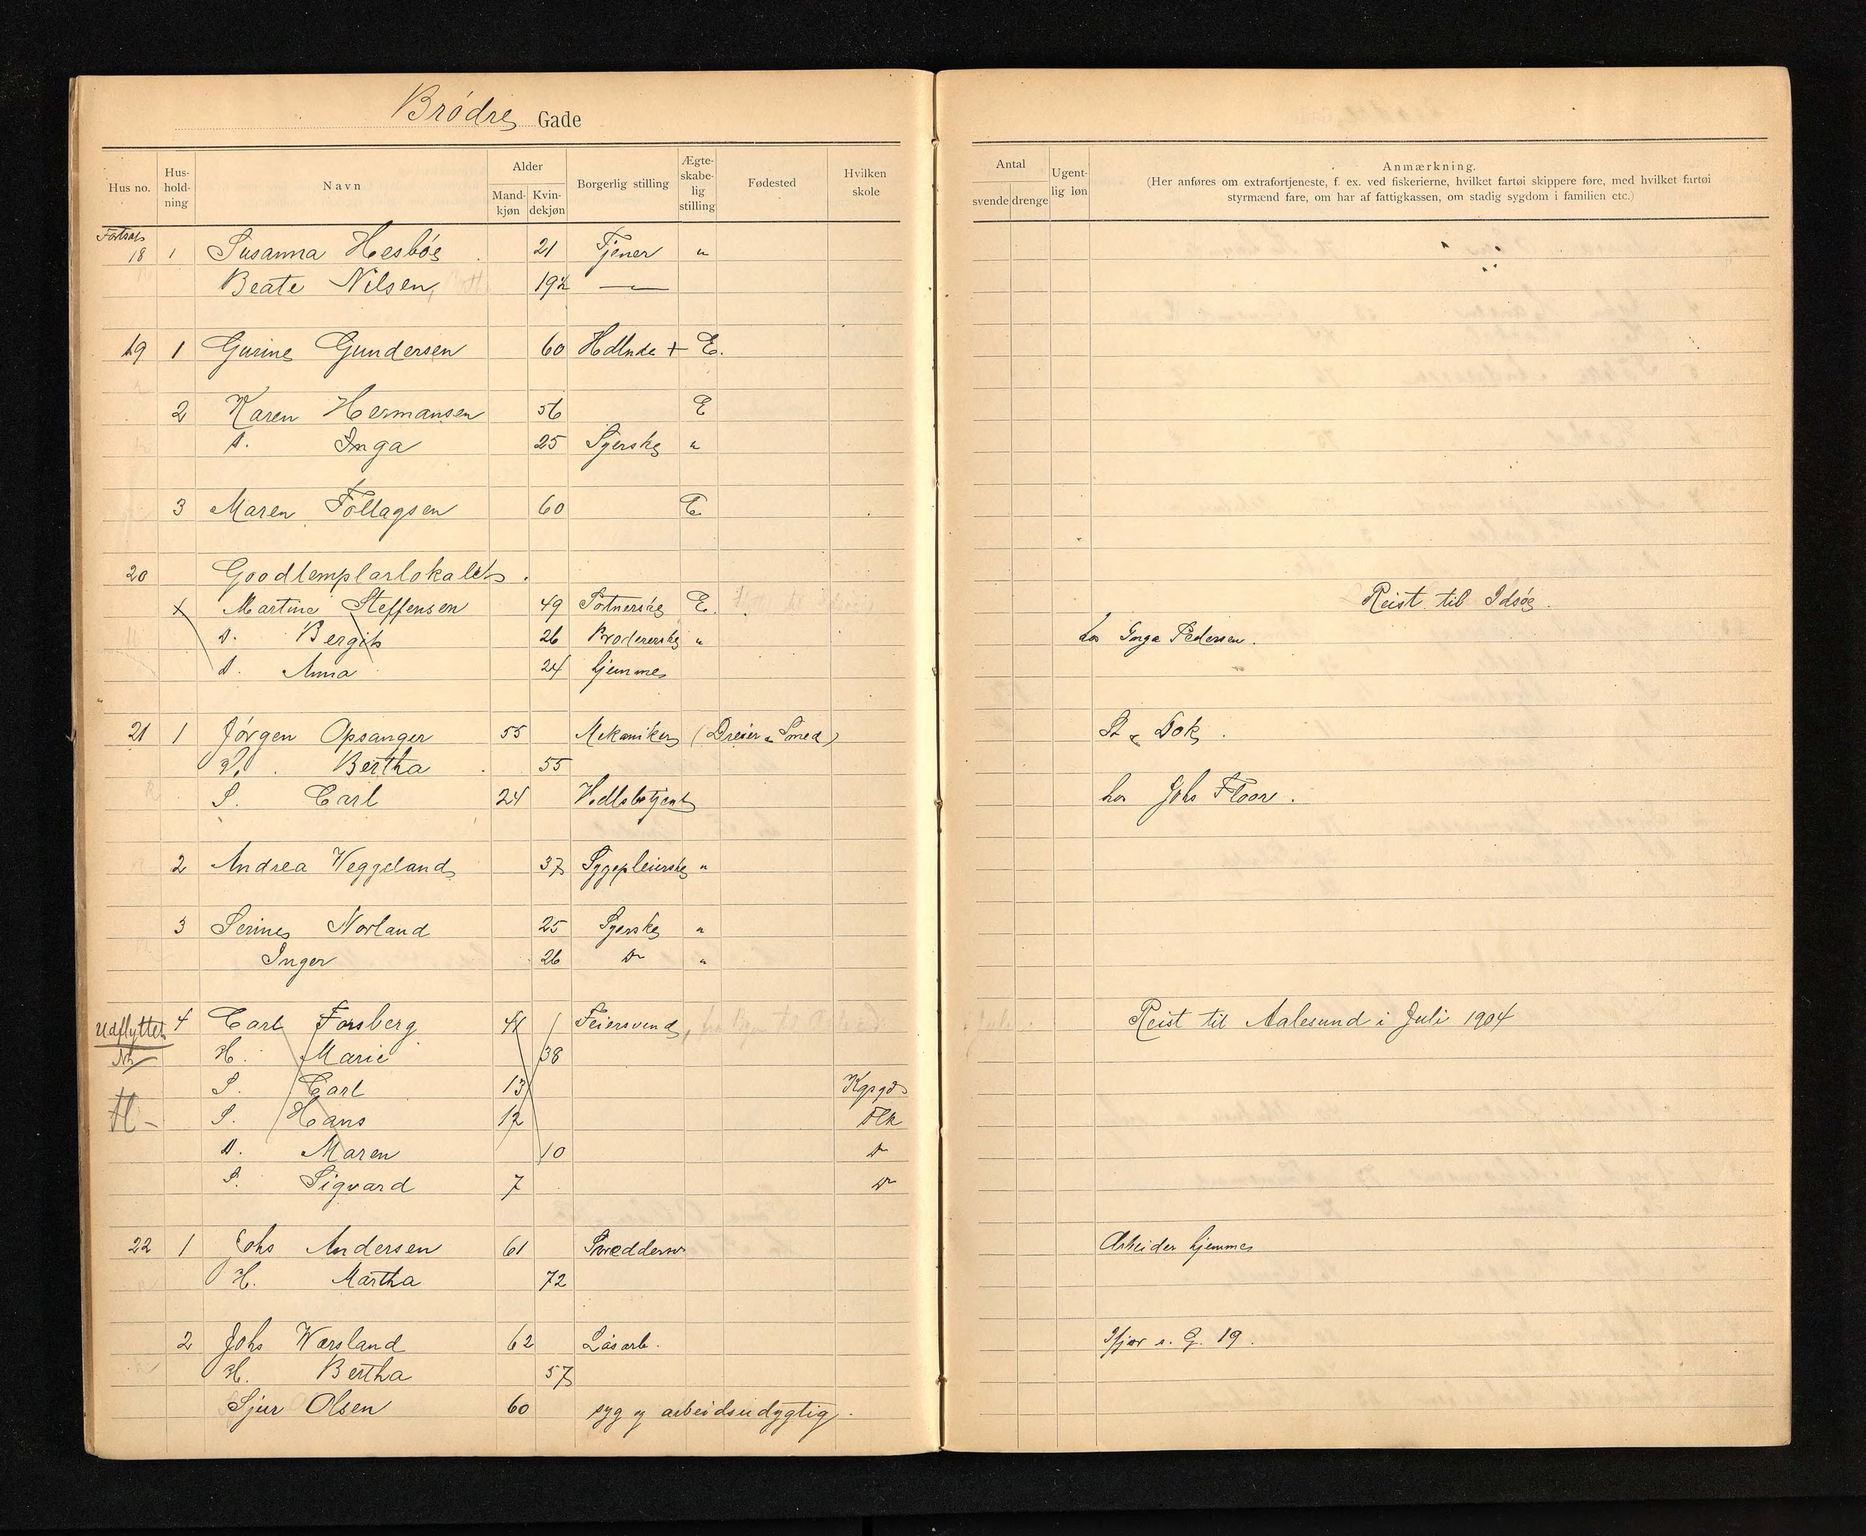 Brödre Gade
Hus no. Hus-hold-ning Navn Alder Mand-kjøn Kvin-dekjøn Borgerlig stilling Ægte-skabe-lig stilling Fødested Hvilken skole
Antal svende drenge Ugent-lig løn Anmærkning.
(Her anføres om extrafortjeneste, f. ex. ved fiskerierne, hvilket fartøi skippere føre, med hvilket fartøi
styrmænd fare, om har af fattigkassen, om stadig sygdom i familien etc.)
Fortsat
18 1 Susanna Hesbøe 21 Tjener "
Beate Nilsen 19½ —
19 1 Gurine Gundersen 60 Hdlnde + E.
2 Karen Hermansen 56 E
D. Inga 25 Syerske "
3 Maren Tollagsen 60 E
20 Goodtemplarlokalet.
x Martine Steffensen 49 Portnerske E. Reist til Idsøe.
D. Bergith 26 Brodererske " hos Inga Pedersen.
D. Anna 24 hjemme
21 1 Jörgen Opsanger 55 Mekaniker (Dreier & Smed) St & Dok.
H. Bertha 55
S. Carl 24 hos Johs Floor.
2 Andrea Veggeland 37 Sygepleierske "
3 Serine Norland 25 Syerske "
Inger 26 Do "
Udflyttet 4 Carl Forsberg 41 Feiersvend Reist til Aalesund i Juli 1904
H. Marie 38
S. Carl 13 Kgsgd
S. Hans 12 Flk
D. Maren 10 Do
S. Sigvard 7 Do
22 1 Johs Andersen 61 Skrædder Arbeider hjemme
H. Martha 72
2 Johs Warsland 62 Løsarb. Ifjor s. G. 19.
H. Bertha 57
Sjur Olsen 60 syg og arbeidsudygtig.